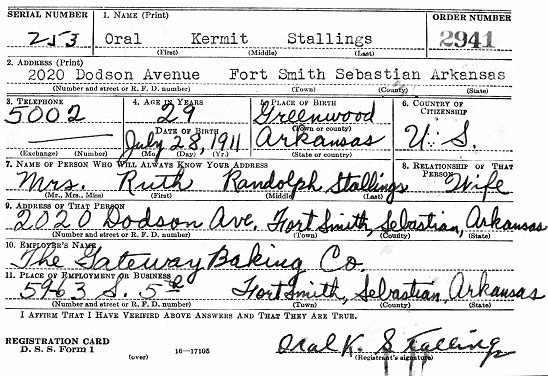 SERIAL NUMBER 1. NAME (Print) ORDER NUMBER
253 Oral Kermit Stallings 2941
(First) (Middle) (Last)
2. ADDRESS (Print)
2020 Dodson Avenue Fort Smith Sebastian Arkansas
(Number and street or R. F. D. number) (Town) (County) (State)
3. TELEPHONE 4. AGE IN YEARS 5. PLACE OF BIRTH 6. COUNTRY OF CITIZENSHIP
5002 29 Greenwood
(Town or county)
DATE OF BIRTH
July 28, 1911 Arkansas U. S.
(Exchange) (Number) (Mo.) (Day) (Yr.) (State or country)
7. NAME OF PERSON WHO WILL ALWAYS KNOW YOUR ADDRESS 8. RELATIONSHIP OF THAT PERSON
Mrs. Ruth Randolph Stallings Wife
(Mr., Mrs., Miss) (First) (Middle) (Last)
9. ADDRESS OF THAT PERSON
2020 Dodson Ave. Fort Smith, Sebastian, Arkansas
(Number and street or R. F. D. number) (Town) (County) (State)
10. EMPLOYER'S NAME
The Gateway Baking Co.
11. PLACE OF EMPLOYMENT OR BUSINESS
S. 5th Fort Smith, Sebastian, Arkansas
(Number and street or R. F. D. number) (Town) (County) (State)
I AFFIRM THAT I HAVE VERIFIED ABOVE ANSWERS AND THAT THEY ARE TRUE.
REGISTRATION CARD
D. S. S. Form 1 (over) 16—17105
Oral K. Stallings
(Registrant's signature)